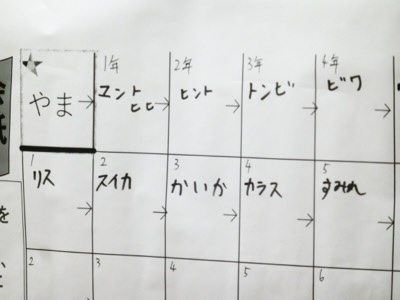 1年 2年 3年 4年
やま→ ヱント ヒヒ→ ヒント→ トンビ→ ビワ
1 2 3 4 5
リス→ スイカ→ かいか→ カラス→ すみれ
2 3 4 5 6
を